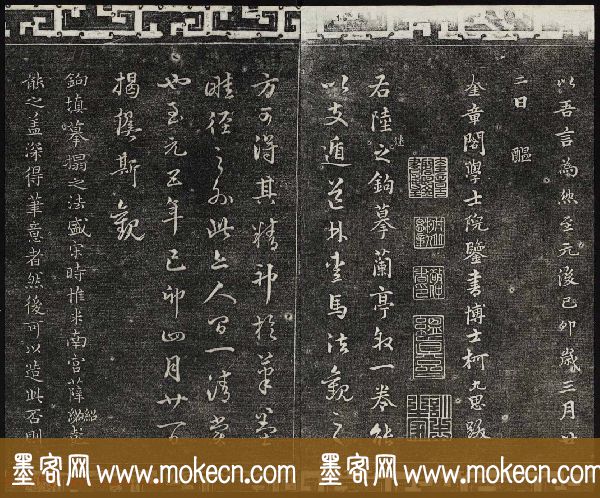 以吾言為然至元後己卯歲三月廿
二日 䣛
奎章閣學士院鑒書博士柯九思跋
右陸之鉤摹蘭亭敘一卷能
述
以支遁道林愛馬法觀之
方可得其精神於筆墨
畦徑之外此亦人間一清賞
也至元五年己卯四月廿一日
揭傒斯觀
鉤填摹搨之法盛宋時惟米南宮薛紹彭
能之蓋深得筆意者然後可以造此否則
墨客网 www.mokecn.com 墨客网 www.mokecn.com